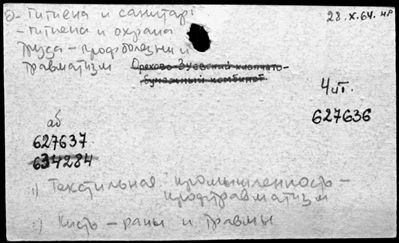 Ә- гигиена и санитар:
28.X.64. нр
- гигиена и охрана
труда - профболезни и
травматизм Орехово-Зуевский хлопчато-
бумажный комбинат
4 шт.
627636
аб
627637
634284
:) Текстильная промышленность -
профтравматизм
:) Кисть - раны и травмы